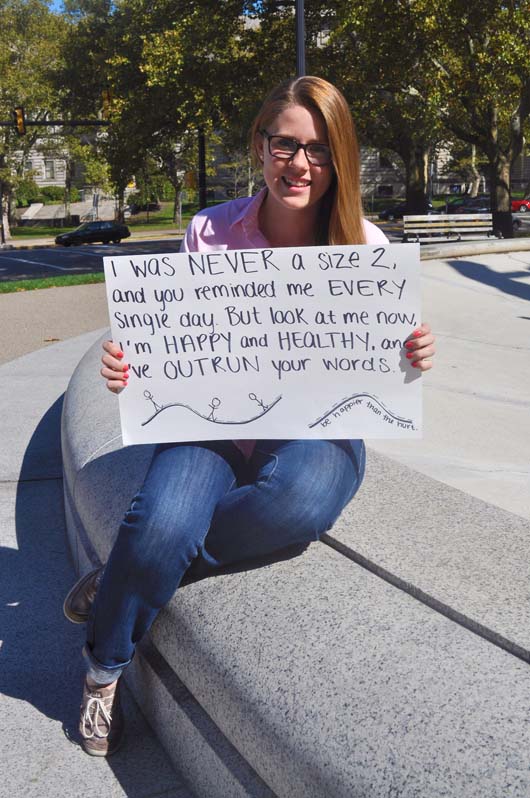 I WAS NEVER a size 2,
and you reminded me EVERY
single day. But look at me now,
I'm HAPPY and HEALTHY. and
I've OUTRUN your words.
be happier than the hurt.